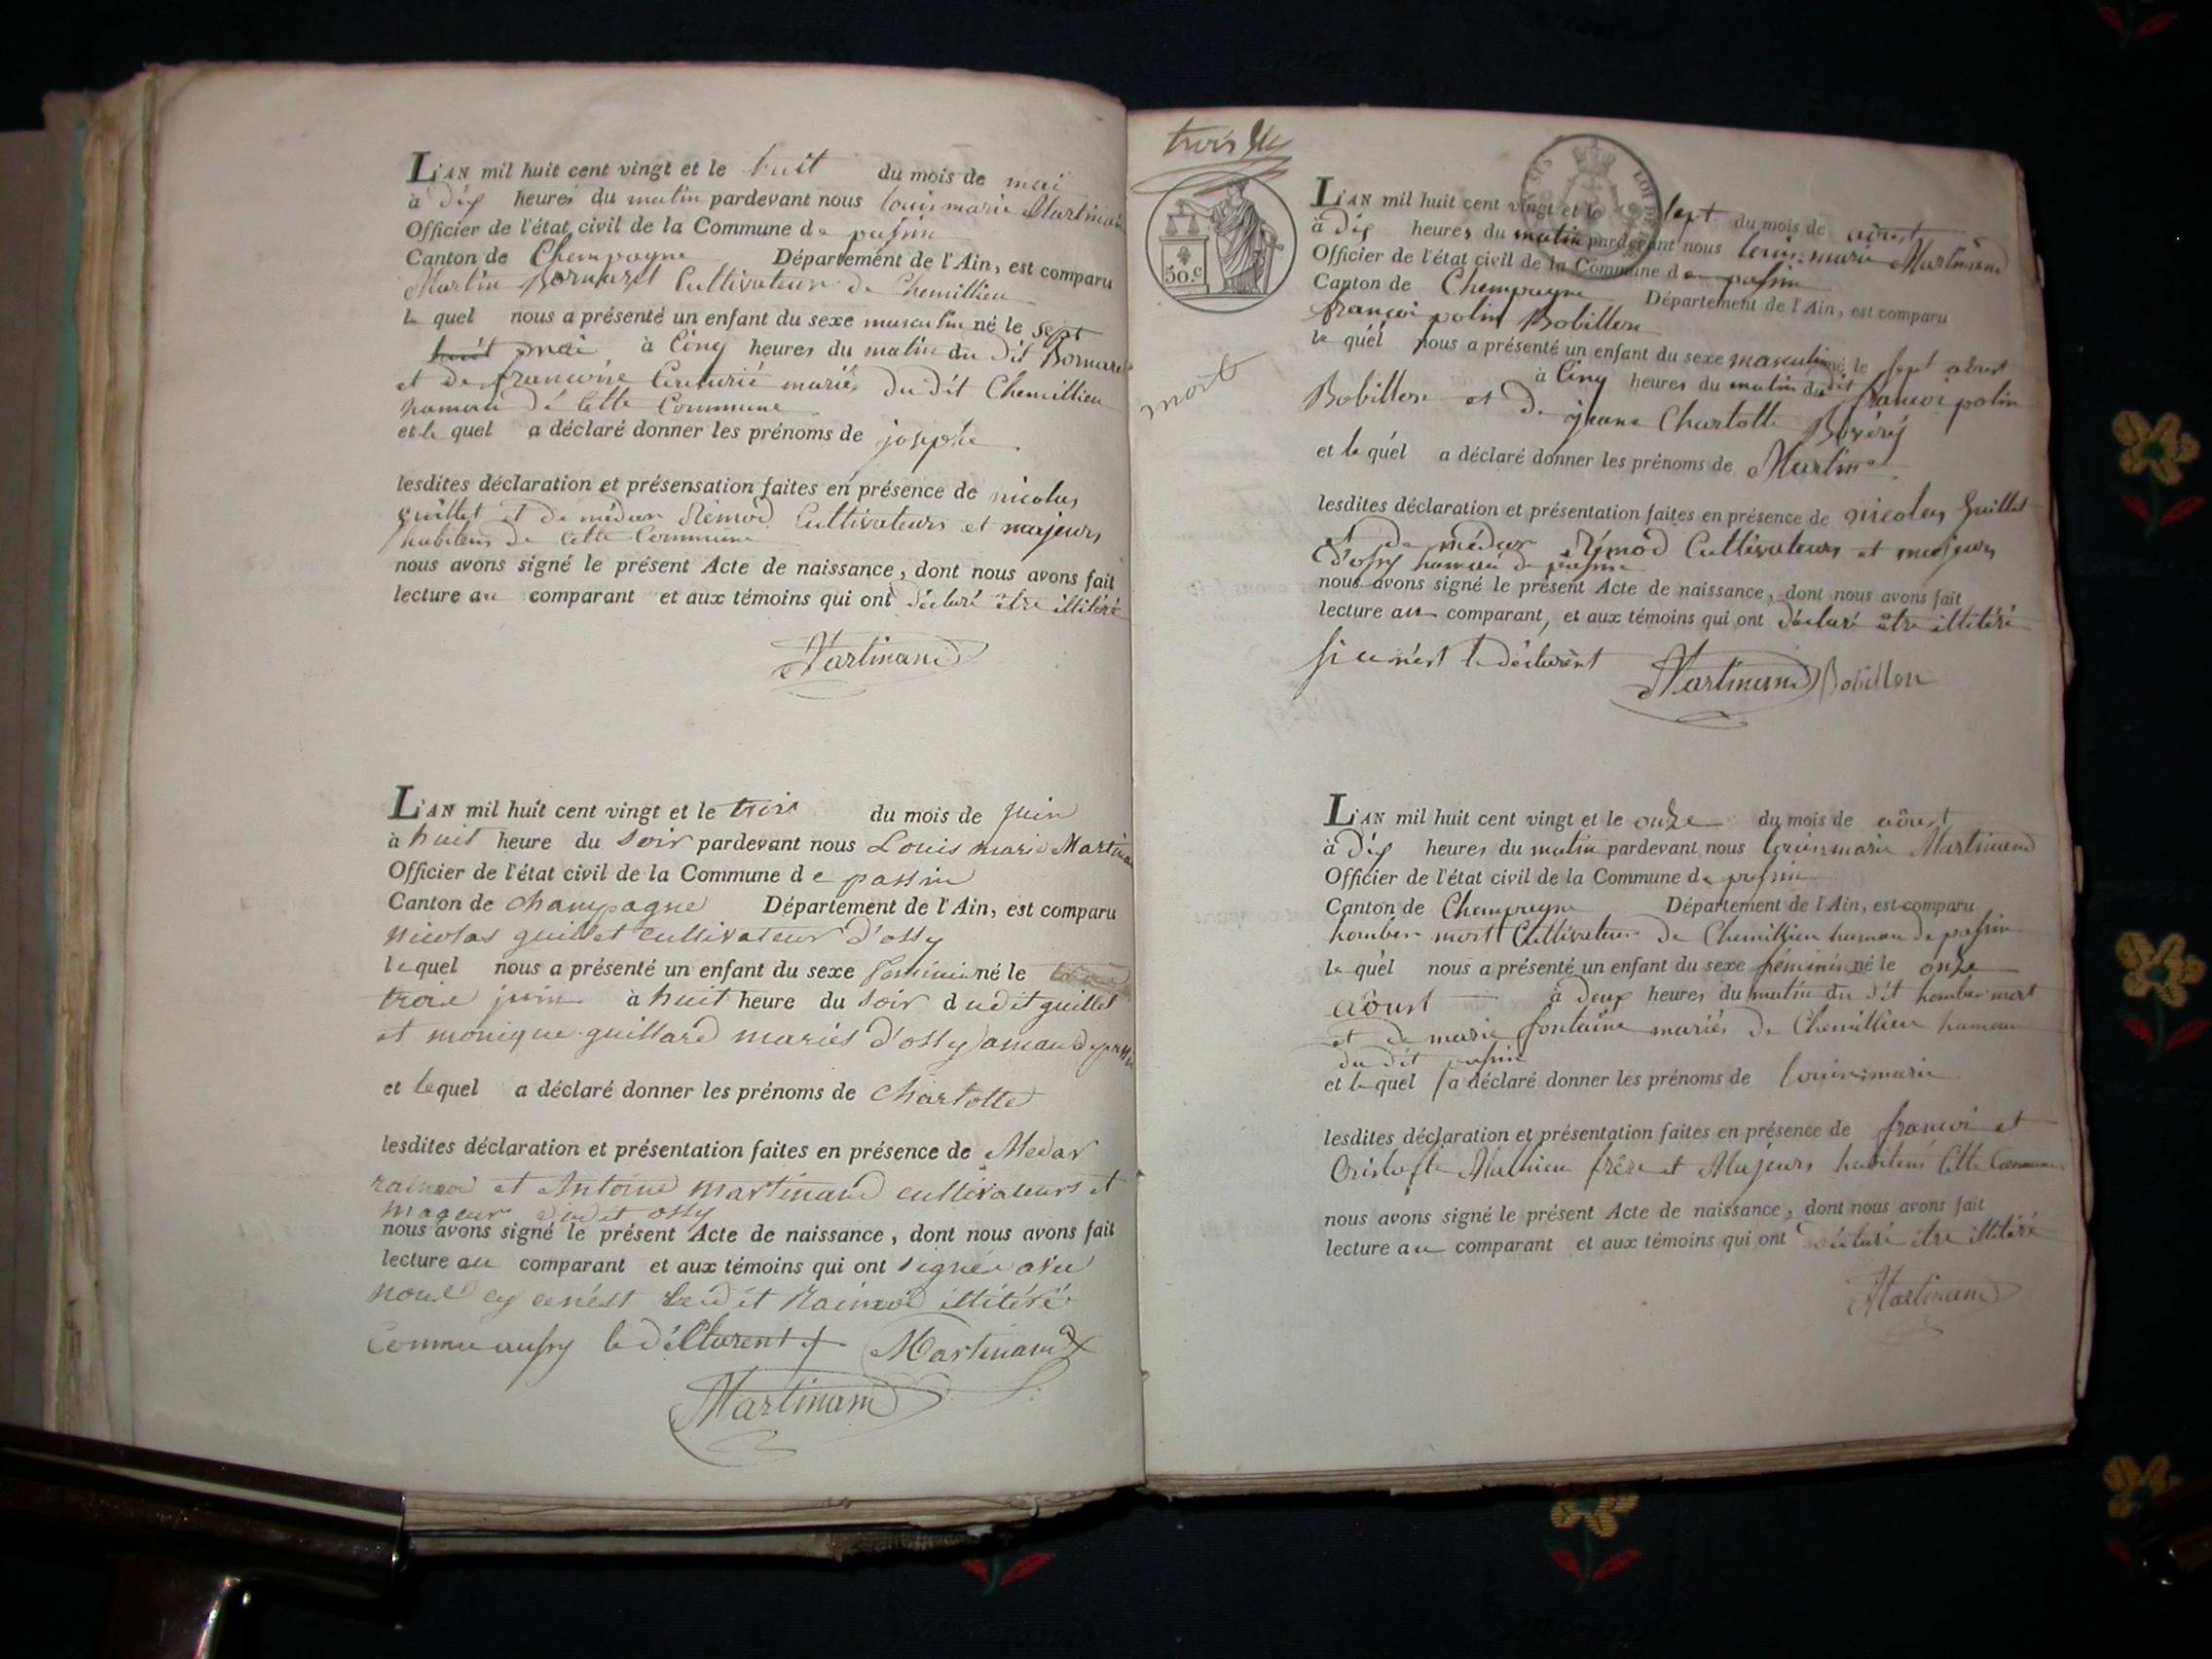 L'AN mil huit cent vingt et le huit du mois de mai
à dix heures du matin pardevant nous louis marie Martinand
Officier de l'état civil de la Commune de passin
Canton de Champagne Département de l'Ain, est comparu
Martin Bornarel Cultivateur de Chemillieu
le quel nous a présenté un enfant du sexe masculin né le sept
huit mai à Cinq heures du matin du dit Bornarel
et de francoise mariés du dit Chemillieu
hamau dé Cette Commune
et le quel a déclaré donner les prénoms de josephe
lesdites déclaration et présensation faites en présence de nicolas
guillet et de médar Rémod Cultivateurs et majeurs
habitans de Cette Commune
nous avons signé le présent Acte de naissance, dont nous avons fait
lecture au comparant et aux témoins qui ont déclaré être illitéré
Martinand
L'AN mil huit cent vingt et le trois du mois de juin
à huit heure du soir pardevant nous Louis marie Martinand
Officier de l'état civil de la Commune de passin
Canton de Champagne Département de l'Ain, est comparu
nicolas guillet cultivateur d'ossy
lequel nous a présenté un enfant du sexe feminin né le
trois juin à huit heure du soir dudit guillet
et monique guillard mariés d'ossy amau de passin
et lequel a déclaré donner les prénoms de Charlotte
lesdites déclaration et présentation faites en présence de Medar
raimod et Antoine Martinand cultivateurs et
mageur dudit ossy
nous avons signé le présent Acte de naissance, dont nous avons fait
lecture au comparant et aux témoins qui ont signés avec
nous cy cenést Ledit Raimod illitéré
Comme aussy le déClarent Martinand
Martinand
trois
50.c
mort
L'AN mil huit cent vingt et le sept du mois de aoust
à dix heures du matin pardevant nous louis marie Martinand
Officier de l'état civil de la Commune de passin
Canton de Champagne Département de l'Ain, est comparu
françoi polin Bobillon
le quél nous a présenté un enfant du sexe masculin né le sept aoust
à Cinq heures du matin du dit francoi polin
Bobillon et de jeane Charlotte
et le quél a déclaré donner les prénoms de Martin
lesdites déclaration et présentation faites en présence de nicolas guillet
et de médar Rémod Cultivateurs et majeurs
d'ossy hamau de passin
nous avons signé le présent Acte de naissance, dont nous avons fait
lecture au comparant, et aux témoins qui ont déclaré être illitéré
si cenést le déclarént Martinand Bobillon
L'AN mil huit cent vingt et le onze du mois de aôust
à dix heures du matin pardevant nous louis marie Martinand
Officier de l'état civil de la Commune de passin
Canton de Champagne Département de l'Ain, est comparu
homber mort Cultivateur de Chemillieu hamau de passin
le quél nous a présenté un enfant du sexe féminin né le onze
aôust à deux heures du matin du dit homber mort
et de marie fontaine mariés de Chemillieu hamau
du dit passin
et le quel a déclaré donner les prénoms de louise marie
lesdites déclaration et présentation faites en présence de francoi et
Cristofle Mathieu frére et Majeurs habitans Cette Commune
nous avons signé le présent Acte de naissance, dont nous avons fait
lecture au comparant et aux témoins qui ont déclaré être illitéré
Martinand